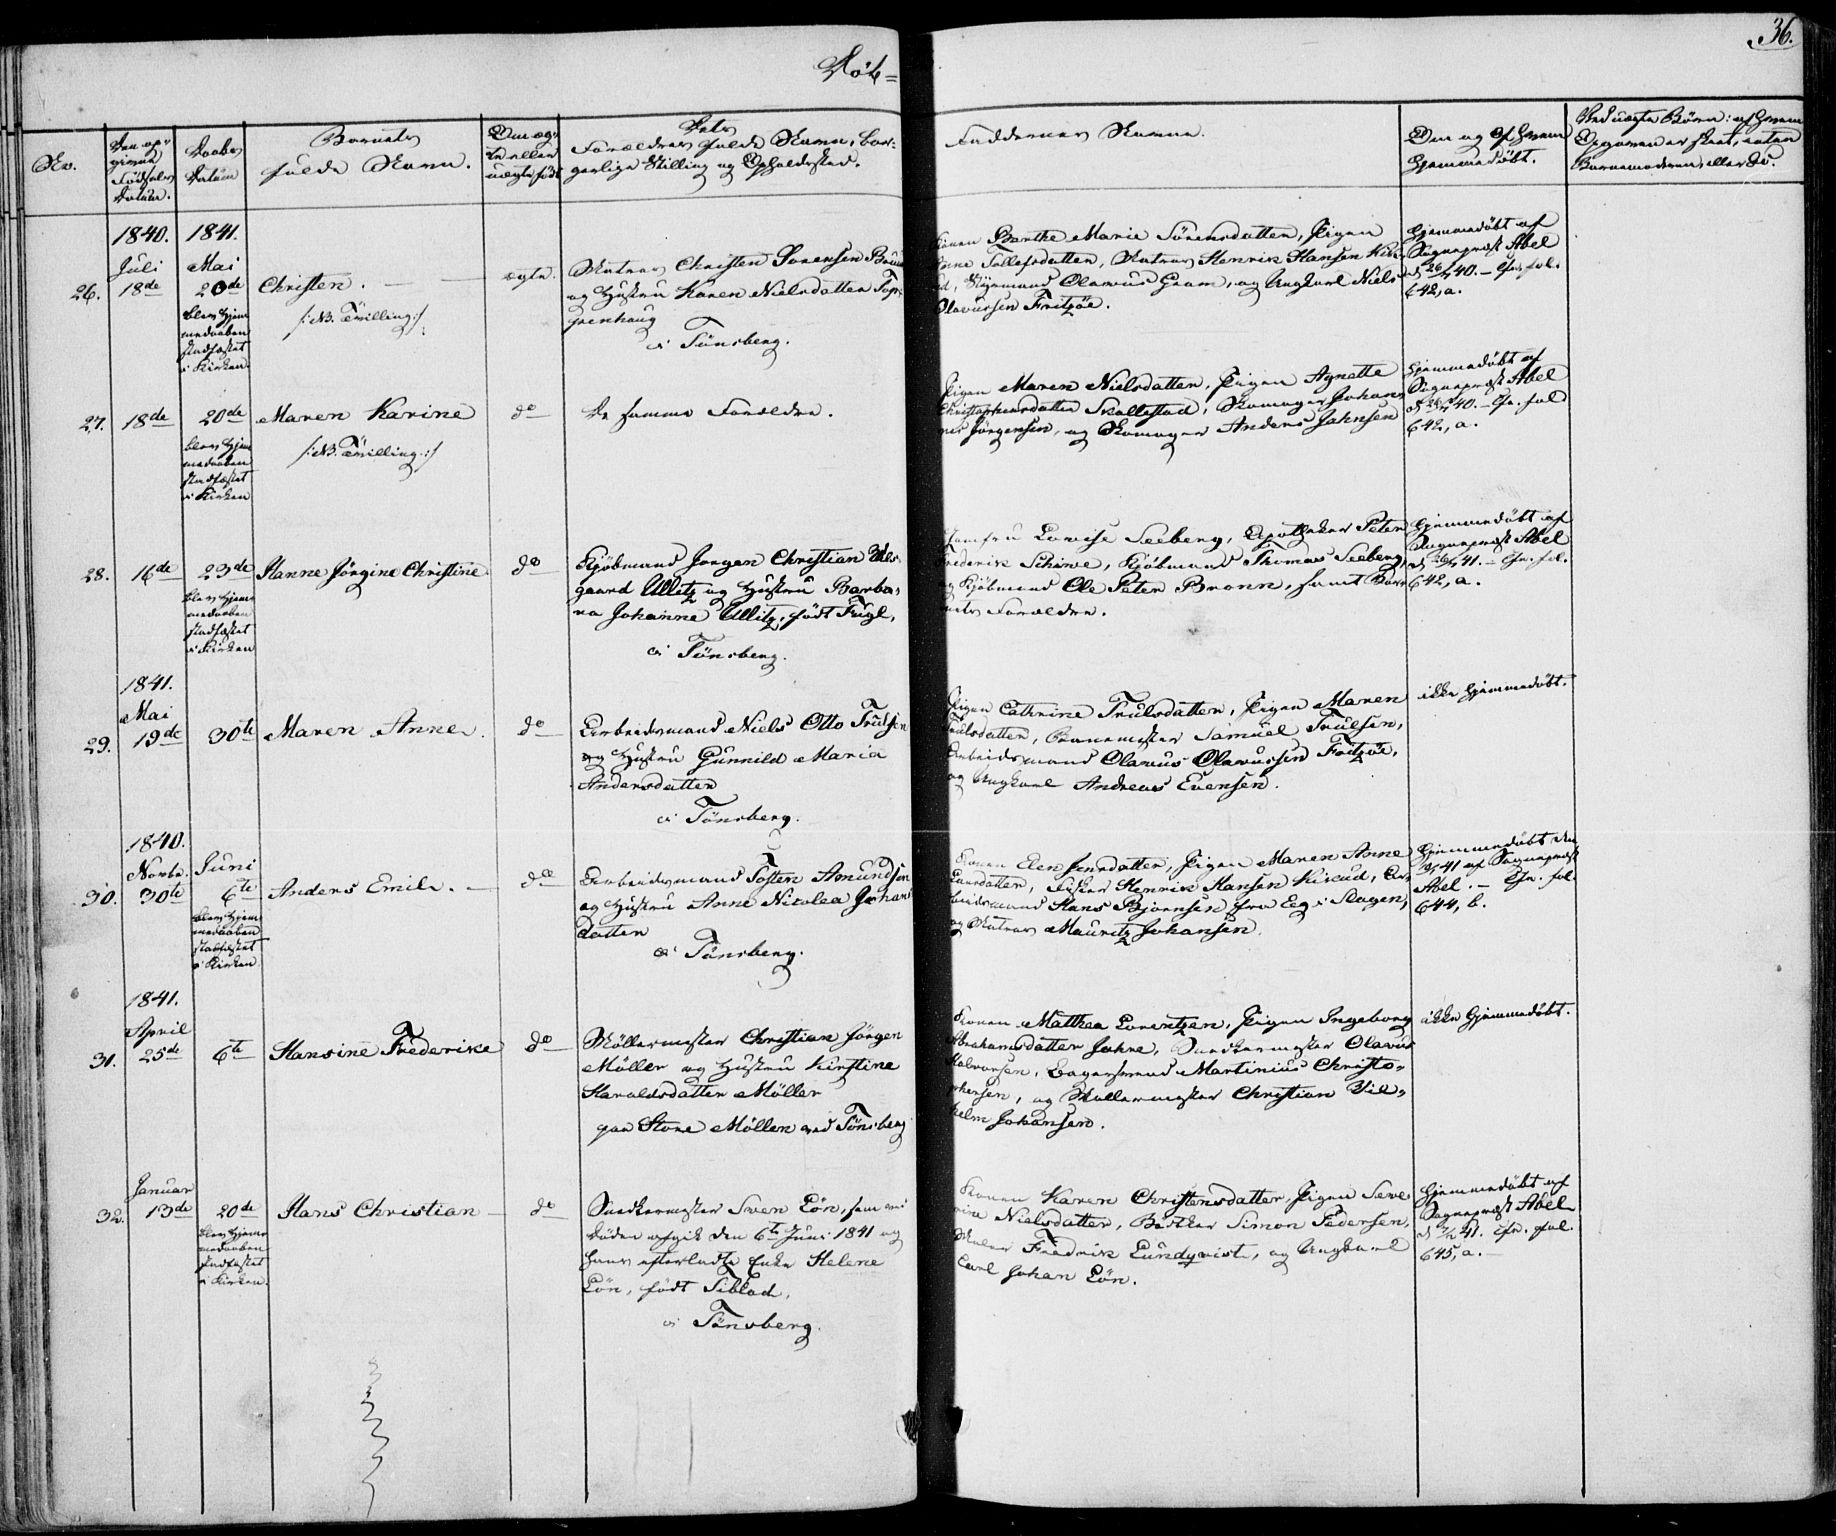 36.
Døb=
No.
Den op-
givne
Fødsels
Datum.
Daabs
Datum
Barnets
fulde Navn.
Om æg-
te eller
uægte født
Dets
Forældres fulde Navn, bor-
gerlige Stilling og Opholdssted.
Faddernes Navne.
Om og af hvem
hjemmedøbt.
Ved uægte Børn: af hvem
Opgaven er skeet, enten
Barnemoderen, eller
1840. 1841.
Juli Mai
26. 18de 20de Christen.
blev hjem
medaaben
stadfæstet
i Kirken
/: NB. Tvilling :/
ægte.
Matros Christen Sørensen
og Hustru Karen Nielsdatter
penhaug
i Tönsberg.
Konen Berthe Marie Sörensdatter, Pigen
Anne Tollefsdatter, Matros Henrik Hansen
Styrmand Olavus Gram, og Ungkarl Niels
Olavussen Fritzöe.
hjemmedøbt af
Sogneprest Abel
40. – Cfr. fol.
642, a.
27. 18de 20de Maren Karine
blev hjem
medaaben
stadfæstet
i Kirken
/: NB. Tvilling :/
do
De samme Forældre.
Pigen Maren Nielsdatter, Pigen Agnette
Christophersdatter Skallestad, Skomager Johan-
nes Jörgensen, og Skomager Anders Jahnsen
hjemmedøbt af
Sogneprest Abel
40. – Cfr. fol
642, a.
28. 16de 23de Hanne Jörgine Christine
blev hjem
medaaben
stadfæstet
i Kirken
do
Kjöbmand Jörgen Christian
gaard Ullitz og Hustru Barba-
ra Johanne Ullitz, født Fugl,
i Tönsberg.
Jomfru Lovise Seeberg, Apotheker Peter
Frederik Schiwe, Kjöbmand Thomas Seeberg,
og Kjöbmand Ole Peter Bronn, samt Bar-
nets Forældre.
hjemmedøbt af
Sogneprest Abel
41. – Cfr. fol.
642, a.
1841.
Mai
29. 19de 30te Maren Anne.
do
Arbeidsmand Niels Otto Trulsen
og Hustru Gunnild Maria
Andersdatter
i Tönsberg.
Pigen Cathrine Trulsdatter, Pigen Maren
Trulsdatter, Samuel Trulsen,
Arbeidsmand Olavus Olavussen Fritzöe,
og Ungkarl Andreas Evensen.
ikke hjemmedøbt.
1840.
Novbr. Juni
30. 30te 6te Anders Emil.
blev hjem-
medaaben
stadfæstet
i Kirken.
do
Arbeidsmand Tosten Amundsen
og Hustru Anne Nicolea Johans
datter
i Tönsberg.
Konen Elen Jensdatter, Pigen Maren Anne
Larsdatter, Fisker Henrik Hansen Kirud, Ar-
beidsmand Hans Bjørnsen fra Eeg i Slagen,
og Matros Mauritz Johansen.
hjemmedøbt den
41 af Sogneprest
Abel. – Cfr. fol.
644, b.
1841.
April
31. 25de 6te Hansine Frederike
do
Möllermester Christian Jörgen
Möller og Hustru Kirstine
Haraldsdatter Möller
paa Store Möllen ved Tönsberg
Konen Mathea Lorentzen, Pigen Ingeborg
Abrahamsdatter Jahre, Snedkermester Olavus
Halvorsen, Martinius Christo-
phersen, og Møllermester Christian Vil-
helm Johansen.
ikke hjemmedøbt.
Januar
32. 13de 20de Hans Christian
blev hjem-
medaaben
stadfæstet
i Kirken.
do
Snedkermester Swen Lön, som ved
Döden afgik den 6te Juni 1841 og
hans efterladte Enke Helene
Lön, født Siblad,
i Tönsberg.
Konen Karen Christensdatter, Pigen Seve-
rine Nielsdatter, Bødker Simon Pedersen,
Maler Fredrik Lundqvist, og Ungkarl
Carl Johan Lön.
hjemmedøbt af
Sogneprest Abel
41. Cfr. fol.
645, a. –